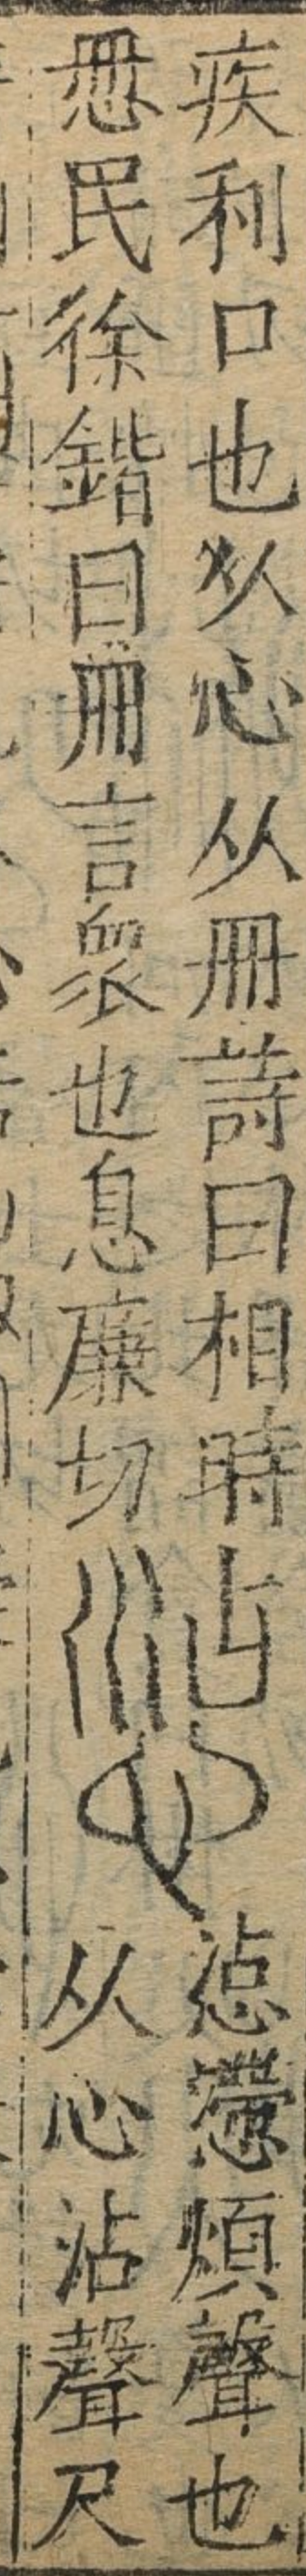 疾利口也从心从冊詩曰相時
民徐鍇曰冊言衆也息廉切
惉
惉懘煩聲也
从心沾聲尺